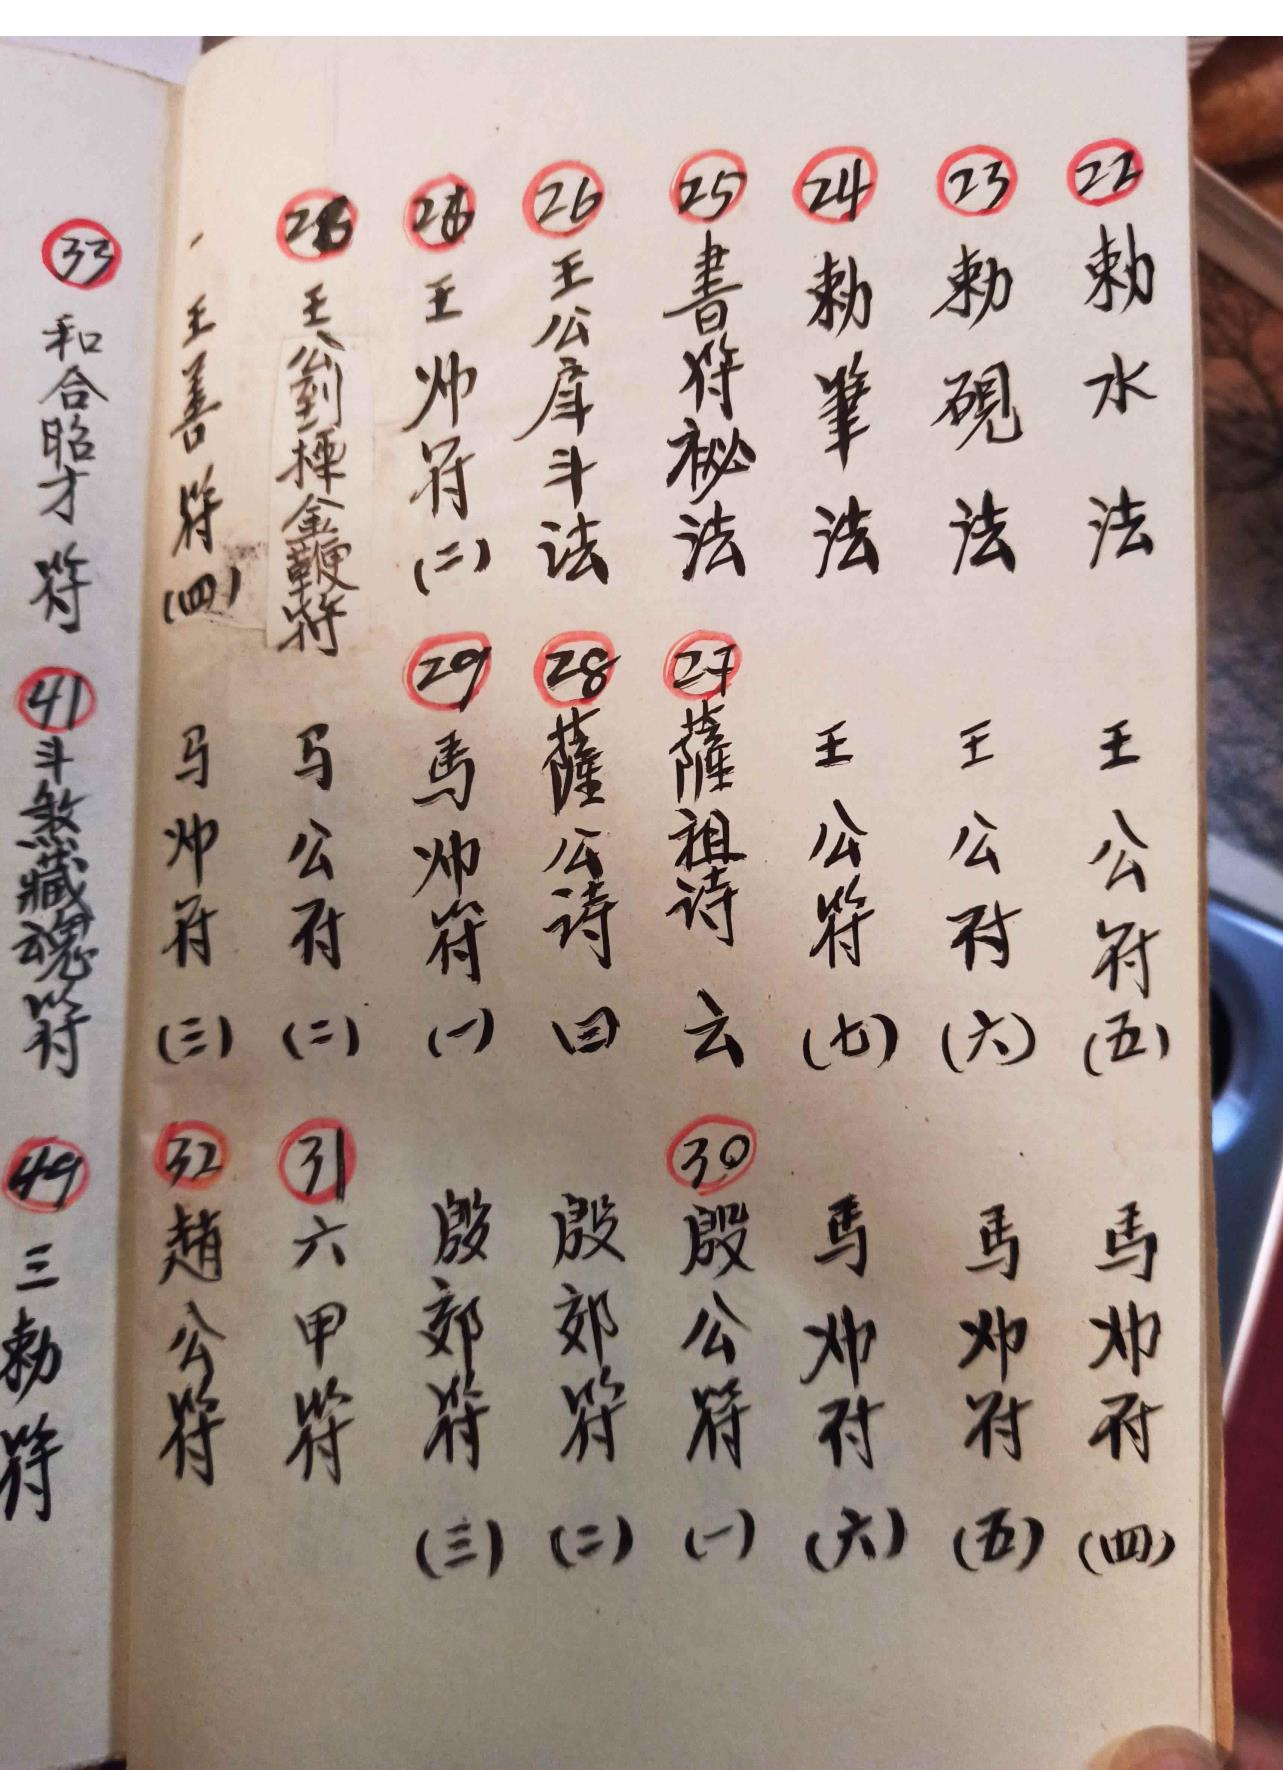 22 勅水法
23 勅硯法
24 勅筆法
25 書符祕法
26 王公庠斗法
王帅符(二)
王公到捶金鞭符
王善符(四)
王公符(五)
王公符(六)
王公符(七)
27 薩祖诗云
28 薩公诗
29 馬帅符(一)
马公符(二)
马帅符(三)
馬帅符(四)
馬帅符(五)
馬帅符(六)
30 殷公符(一)
殷郊符(二)
殷郊符(三)
31 六甲符
32 趙公符
33 和合昭才符
41 斗煞藏魂符
49 三勅符